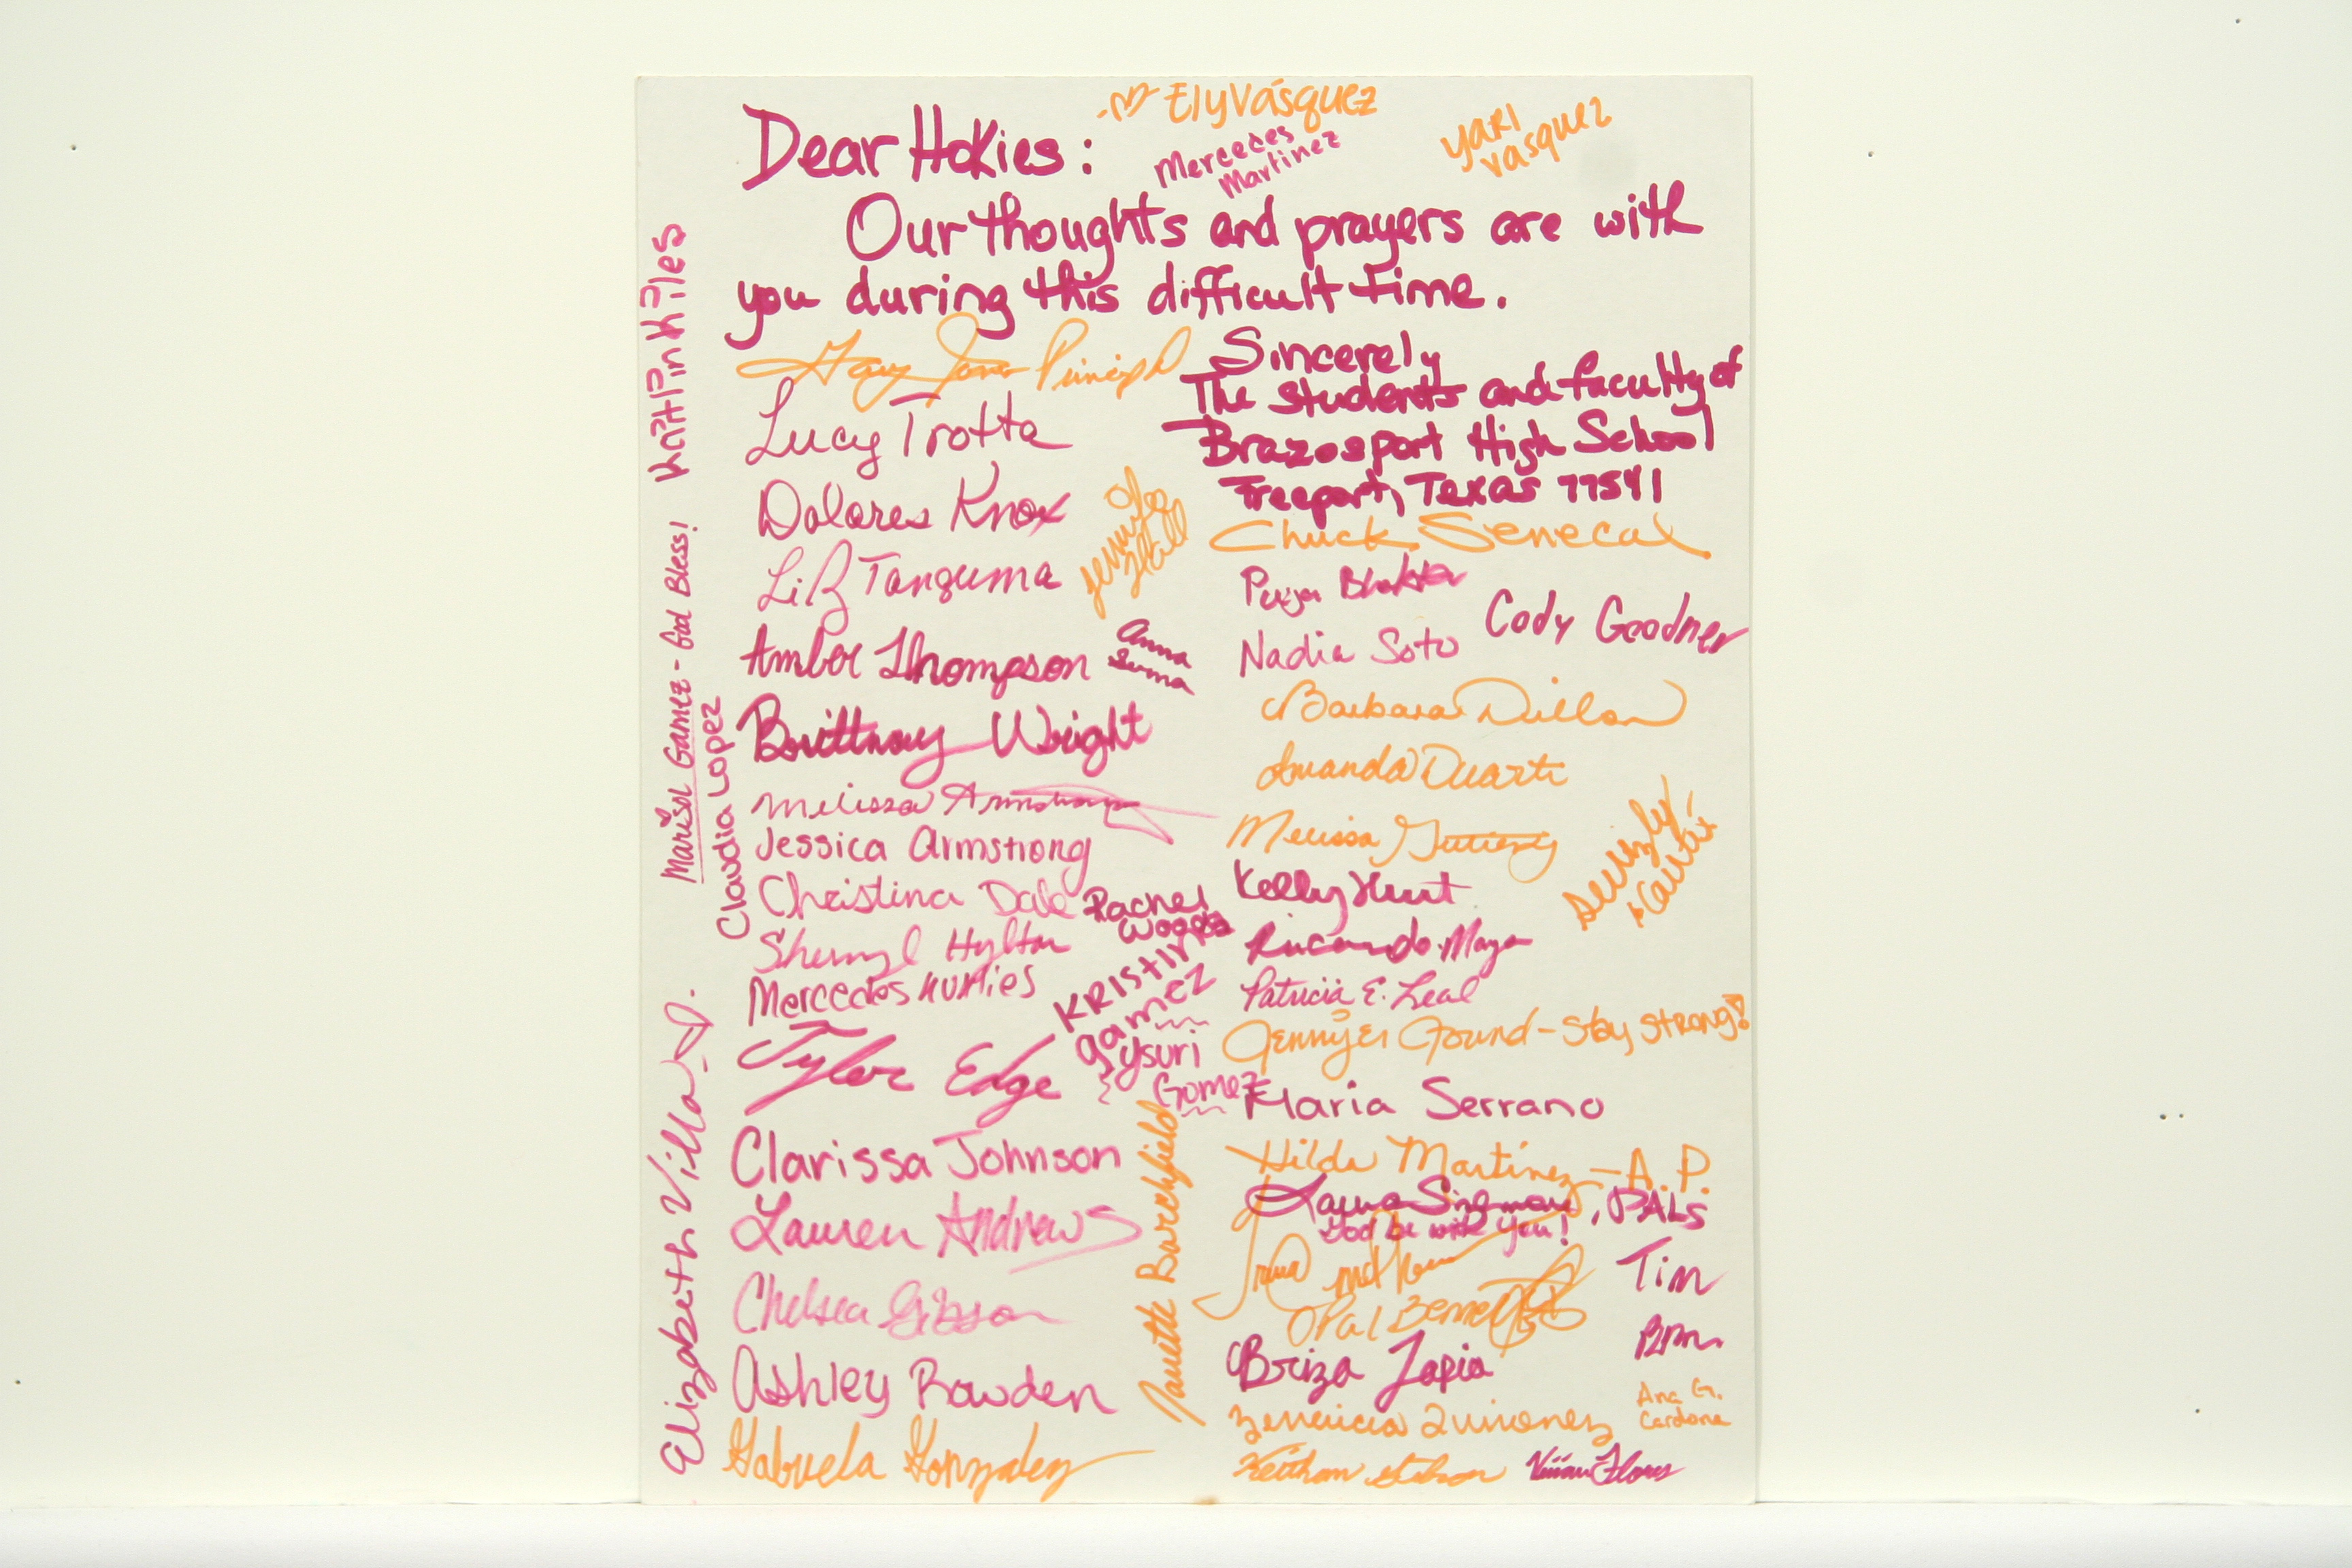 Ely Vásquez
Dear Hokies:
Mercedes
Martinez
Yari
Vasquez
Our thoughts and prayers are with
you during this difficult time.
Sincerely
The students and faculty of
Brazosport High School
Freeport, Texas 77541
Principal
Lucy Trotta
Dolores Knox
Liz Tanguma
Amber Thompson
Brittnay Wright
Melissa Armstrong
Jessica Armstrong
Christina Dale
Sherryl Hylton
Mercedes
Tyler Edge
Clarissa Johnson
Lauren Andrews
Chelsea Gibson
Ashley Bowden
Gabriela Gonzalez
Kait Pin Kiles
Marisol Gamez - God Bless!
Claudia Lopez
Elizabeth Villa
Jennifer
Hall
Anna
Serna
Rachel
Woods
Kristina
Gamez
Ysuri
Gomez
Janette Barchfield
Chuck Senecal
Puja Bhakta
Cody Goodner
Nadia Soto
Barbara Dillon
Amanda Duarte
Melissa Gutierrez
Kelly Hunt
Ricardo Maya
Patricia E. Leal
Jennyer Pound - Stay Strong!
Maria Serrano
Hilda Martinez - A.P.
Laura , PALS
God be with you!
Tim
Opal Bennett
Briza Tapia
Ana G.
Cardona
Quinonez
Vivian Flores